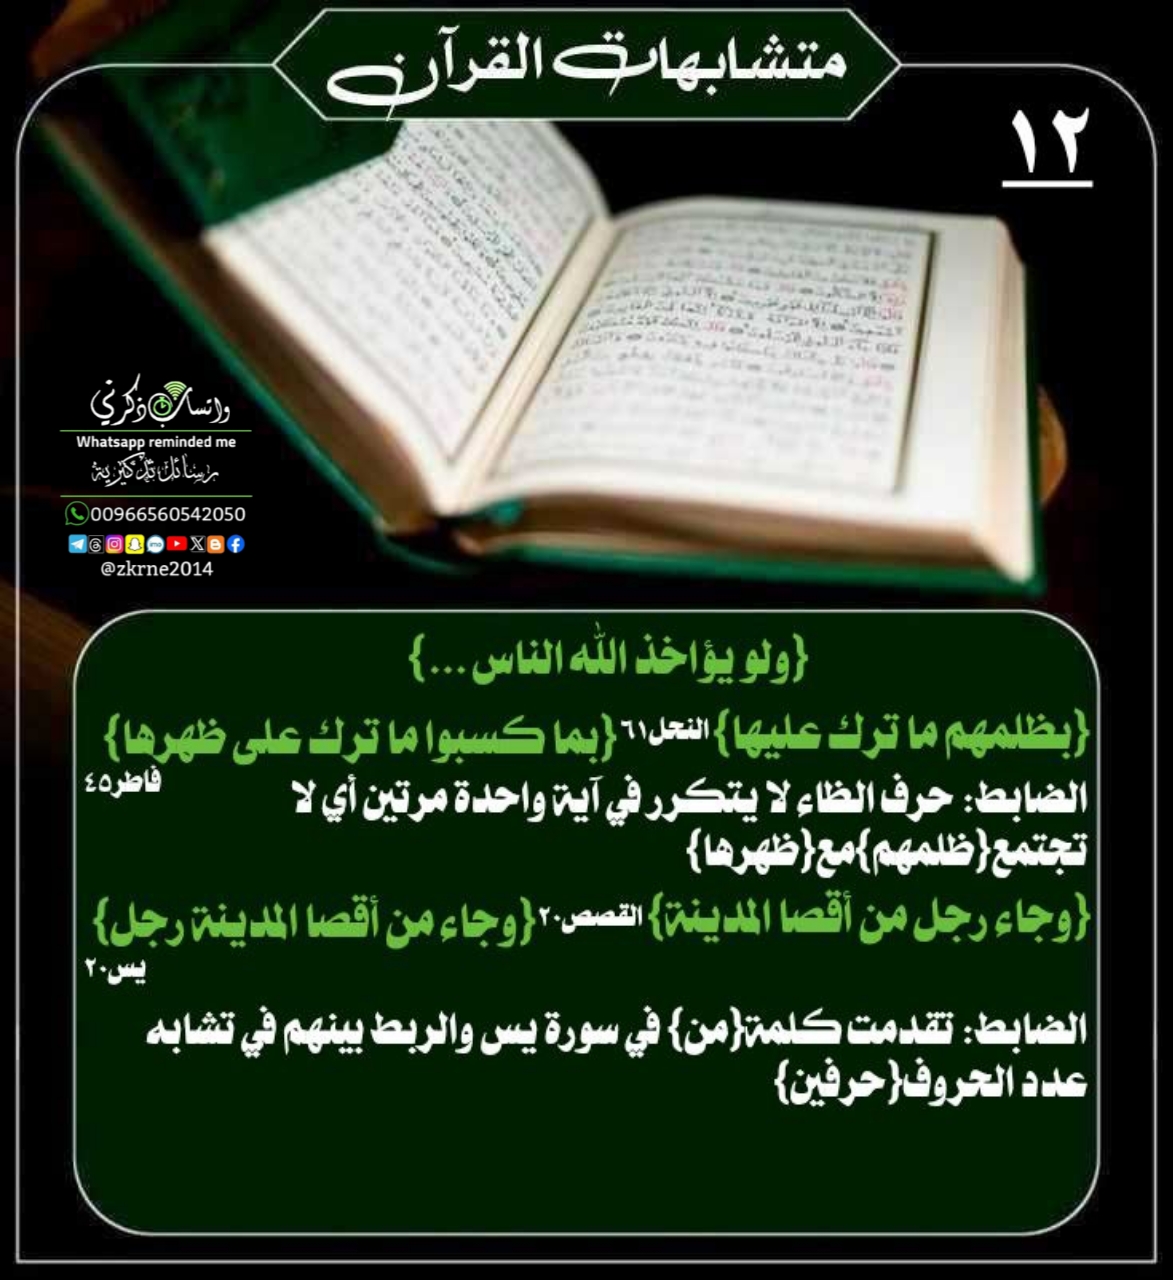 متشابهات القرآن
١٢
واتساب ذكرني
Whatsapp reminded me
رسائل تذكيرية
00966560542050
@zkrne2014
{ولو يؤاخذ الله الناس ...}
{بظلمهم ما ترك عليها} النحل٦١ {بما كسبوا ما ترك على ظهرها}
فاطر٤٥
الضابط: حرف الظاء لا يتكرر في آية واحدة مرتين أي لا
تجتمع{ظلمهم}مع{ظهرها}
{وجاء رجل من أقصا المدينة} القصص٢٠ {وجاء من أقصا المدينة رجل}
يس٢٠
الضابط: تقدمت كلمة{من} في سورة يس والربط بينهم في تشابه
عدد الحروف{حرفين}